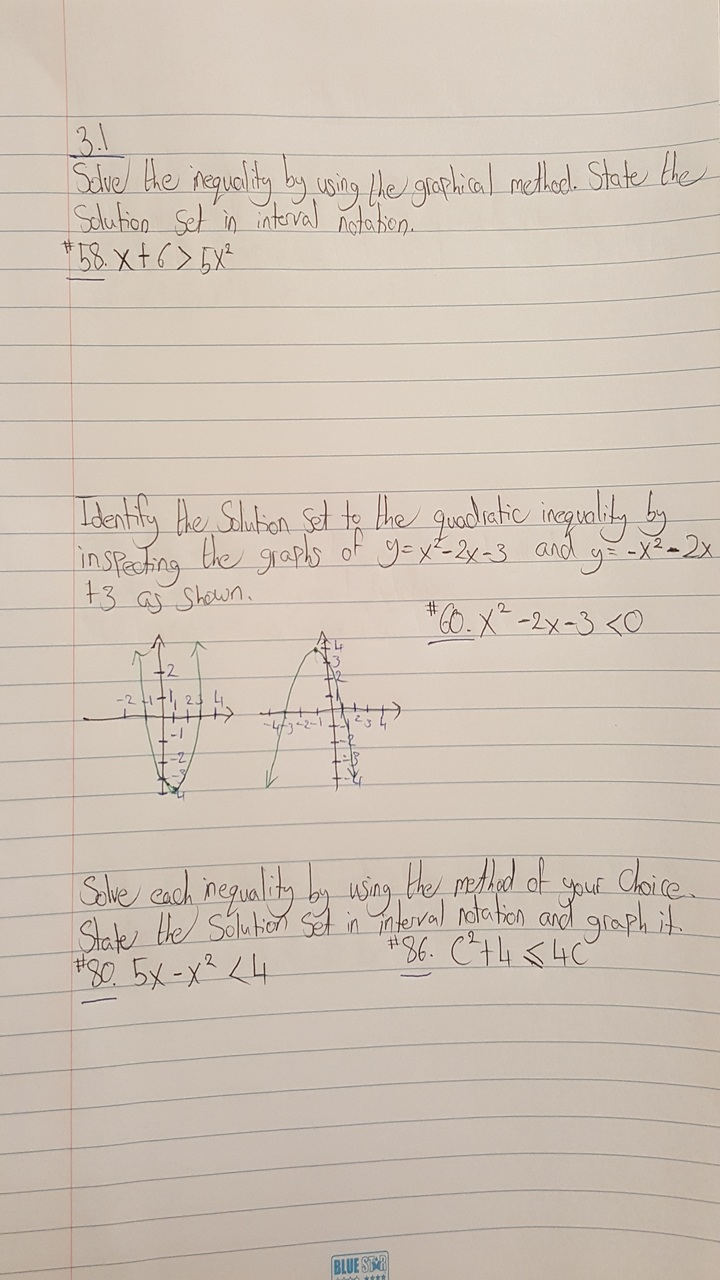 3.1
Solve the inequality by using the graphical method. State the
Solution Set in interval notation.
#58. x+6>5x²
Identify the Solution Set to the quadratic inequality by
inspecting the graphs of y=x²-2x-3 and y=-x²-2x
+3 as shown.
#60. x²-2x-3<0
2
-2 -1 1 2 3 4
-1
-2
-3
-4
4
3
2
1
-4 -3 -2 -1 1 2 3 4
-1
-2
-3
-4
Solve each inequality by using the method of your Choice.
State the Solution Set in interval notation and graph it.
#80. 5x-x²<4 #86. C²+4≤4C
BLUE STAR